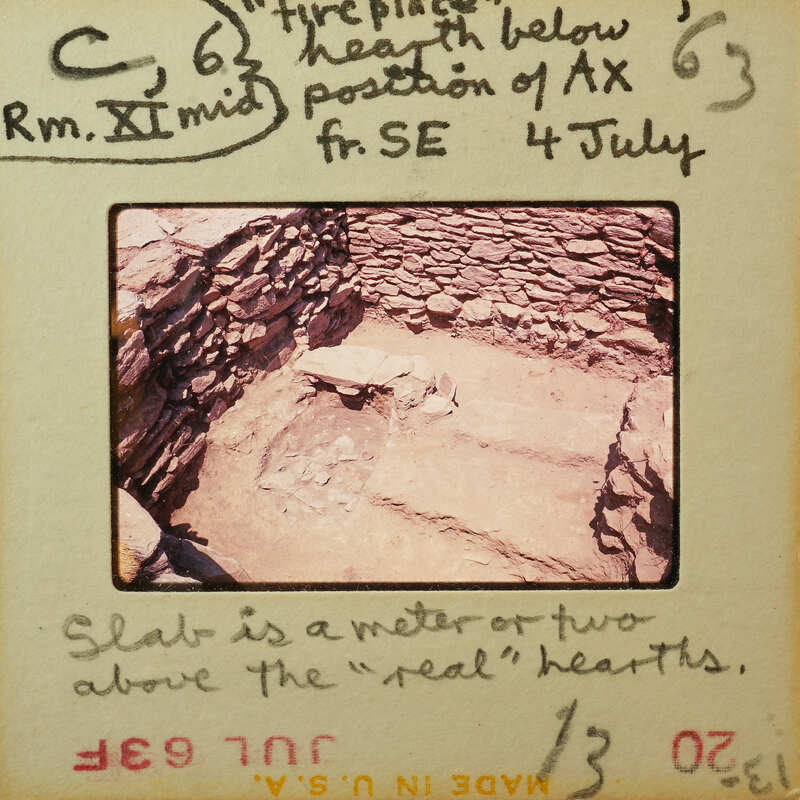 "fireplace"
C, 6
hearth below
63
Rm. XI mid
position of AX
fr. SE 4 July
Slab is a meter or two
above the "real" hearths.
JUL 63F
13
20
MADE IN U.S.A.
13-